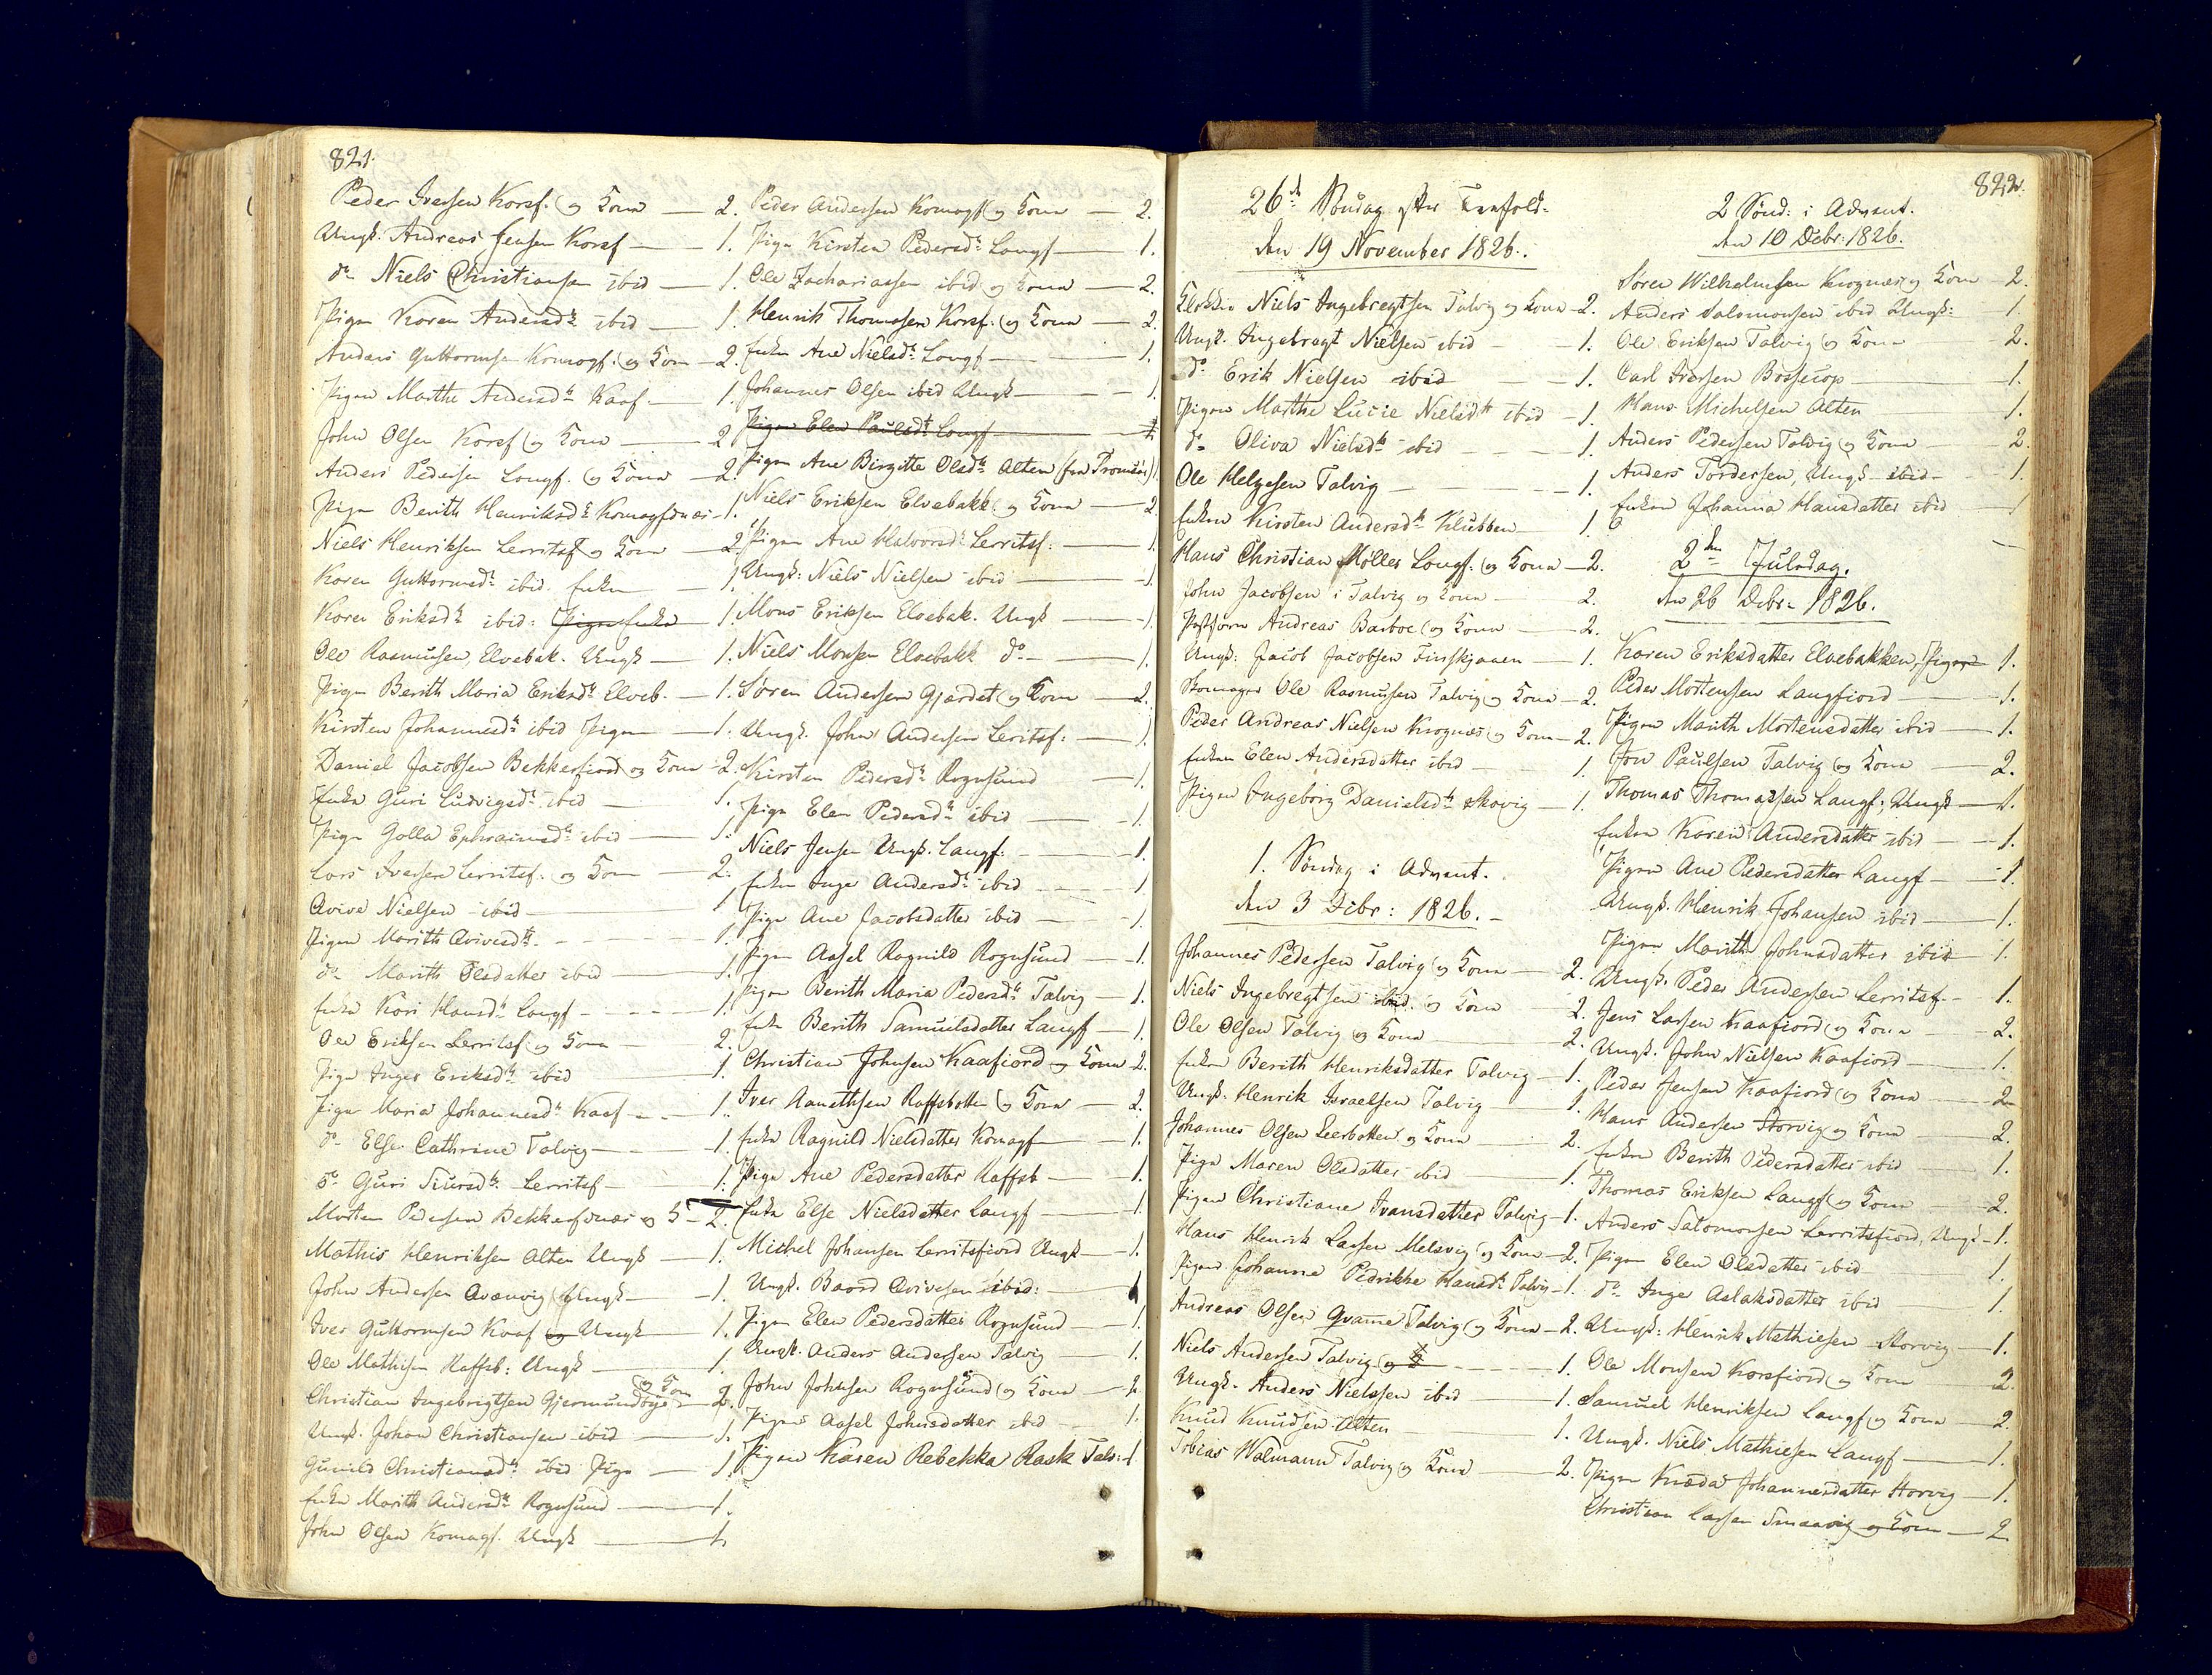 821.
Peder Iversen Korsf. og Kona — 2.
Ungk. Andreas Jensen Korsf — 1.
do Niels Christiansen ibid — 1.
Pigen Karen Andersdr ibid — 1.
Anders Guttormsen Komagf. og Kon — 2.
Pigen Marthe Andersdr Kaaf. — 1.
John Olsen Korsf og Kona — 2
Anders Pedersen Langf. og Kona — 2.
Pigen Berith Henriksdr Komagfsnæs — 1.
Niels Henriksen Lerritsf og Kona — 2.
Karen Guttormsdr ibid. Enken — 1.
Karen Eriksdr ibid: Pigen Enken — 1.
Ole Rasmusen, Elvebak. Ungk — 1.
Pigen Berith Maria Eriksdr Elveb. — 1.
Kirsten Johannesdr ibid Pigen — 1.
Daniel Jacobsen Bekkerfiord og Kona — 2.
Enken Guri Ludvigsdr ibid — 1.
Pigen Golla Ephraimsdr ibid — 1.
Lars Iversen Lerritsf. og Kon — 2.
Avive Nielsen ibid — 1
Pigen Marith Avivesdr — 1.
do Marith Olsdatter ibid — 1.
Enke Kari Hansdr Langf — 1.
Ole Eriksen Lerritsf og Kona — 2.
Pigen Inger Eriksdr ibid — 1.
Pigen Maria Johannesdr Kaaf — 1.
do Else Cathrine Talvig — 1.
do Guri Siursdr Lerritsf — 1.
Morten Pedersen Bekkerfsnæs og K — 2.
Mathis Henriksen Alten Ungk — 1.
John Andersen Qvænvig Ungk — 1.
Iver Guttormsen Kaaf og Ungk — 1.
Ole Mathisen Raffsb: Ungk — 1.
og Kon
Christian Ingebrigtsen Gjermundbye — 2.
Ungk. Johan Christiansen ibid — 1.
Gunild Christiansdr ibid Pige — 1.
Enke Marith Andersdr Rognsund — 1.
John Olsen Komagf. Ungk — 1.
Peder Andersen Komagf og Kona — 2.
Pigen Kirsten Pedersdr Langf — 1.
Ole Zachariassen ibid og Kona — 2.
Henrik Thomasen Korsf. og Kona — 2.
Enken Ane Nielsdr Langf — 1.
Johannes Olsen ibid Ungk — 1.
Pigen Elen Paulsdr Langf — 1.
Pigen Ane Birgitte Olsdr Alten (fra Tromsöe) 1.
Niels Eriksen Elvebakk. og Kona — 2
Pigen Ane Halvorsdr Lerritsf. — 1.
Ungk: Niels Nielsen ibid — 1.
Mons Eriksen Elvebak. Ungk — 1.
Niels Monsen Elvebakk do — 1.
Søren Andersen Gjærdet og Kon — 2.
Ungk. John Andersen Leritsf. — 1.
Kirsten Pedersdr Rognsund — 1.
Pigen Elen Pedersdr ibid — 1.
Niels Jensen Ungk. Langf. — 1.
Enken Inger Andersdr ibid — 1.
Pigen Ane Jacobsdatter ibid — 1.
Pigen Aasel Ragnild Rognsund — 1.
Pigen Berith Maria Pedersdr Talvig — 1.
Enken Berith Samuelsdatter Langf — 1.
Christian Johnsen Kaafiord og Kona 2.
Iver Aanethsen Raffsbotten og Kona — 2.
Enke Ragnild Nielsdatter Komagf — 1.
Pige Ane Pedersdatter Raffsb — 1.
Enke Else Nielsdatter Langf — 1.
Michel Johansen Lerritsfiord Ungk — 1.
Ungk. Baard Avivesen ibid: — 1
Pigen Elen Pedersdatter Rognsund — 1.
Ungk. Anders Andersen Talvig — 1.
John Johnsen Rognsund og Kona — 2.
Pigen Aasel Johnsdatter ibid — 1.
Pigen Karen Rebekka Rask Talv: 1.
822.
26de Søndag efter Trefold.
den 19 November 1826.
Klokker Niels Ingebregtsen Talvig og Kona — 2.
Ungk. Ingebregt Nielsen ibid — 1.
do Erik Nielsen ibid — 1.
Pigen Marthe Lucie Nielsdr ibid — 1.
do Oliva Nielsdr ibid — 1.
Ole Helgesen Talvig — 1.
Enken Kirsten Andersdr Klubben — 1.
Hans Christian Møller Langf. og Kona — 2.
John Jacobsen i Talvig og Kona — 2.
Andreas Barboe og Kona — 2.
Ungk: Jacob Jacobsen Finskjaaen — 1.
Skomager Ole Rasmusen Talvig og Kona — 2.
Peder Andreas Nielsen Krognæs og Kona — 2.
Enken Elen Andersdatter ibid — 1.
Pigen Ingeborg Danielsdr Storvig — 1.
1. Søndag i Advent.
den 3 Debr: 1826.
Johannes Pedersen Talvig og Kona — 2.
Niels Ingebregtsen ibid. og Kona — 2.
Ole Olsen Talvig og Kona — 2.
Enken Berith Henriksdatter Talvig — 1.
Ungk. Henrik Israelsen Talvig — 1.
Johannes Olsen Leerbotten og Kona — 2.
Pigen Maren Olsdatter ibid — 1.
Pigen Christiane Ivarsdatter Talvig — 1.
Hans Henrik Larsen Melsvig og Kona — 2.
Pigen Johanne Pedrikke Hansdr Talvig — 1.
Andreas Olsen Qvame Talvig og Kona — 2.
Niels Andersen Talvig og K — 1.
Ungk. Anders Nielsen ibid — 1.
Knud Knudsen Alten — 1.
Tobias Walmann Talvig og Kona — 2.
2 Sønd: i Advent.
den 10 Debr: 1826.
Søren Wilhelmsen Krognæs og Kona — 2.
Anders Salomonsen ibid Ungk: 1.
Ole Eriksen Talvig og Kona 2.
Carl Iversen Bossecop — 1.
Hans Michelsen Alten 1.
Anders Pedersen Talvig og Kona — 2.
Anders Tordersen, Ungk ibid — 1.
Enken Johanna Hansdatter ibid — 1
2den Juledag.
den 26 Debr: 1826.
Karen Eriksdatter Elvebakken, Pigen 1.
Peder Mortensen Langfiord — 1.
Pigen Marith Mortensdatter ibid — 1.
Jon Paulsen Talvig og Kona — 2.
Thomas Thomassen Langf; Ungk — 1.
Enken Karen Andersdatter ibid — 1.
Pigen Ane Pedersdatter Langf — 1.
Ungk. Henrik Johansen ibid — 1.
Pigen Marith Johnsdatter ibid 1.
Ungk. Peder Andersen Lerritsf. — 1.
Jens Larsen Kaafiord og Kona — 2.
Ungk. John Nielsen Kaafiord — 1.
Peder Jensen Kaafiord og Kona — 2
Hans Andersen Storvig og Kona — 2.
Enken Berith Pedersdatter ibid — 1.
Thomas Eriksen Langf og Kona — 2.
Anders Salomonsen Lerritsfiord, Ungk — 1.
Pigen Elen Olsdatter ibid 1.
do Inger Aslaksdatter ibid 1.
Ungk: Henrik Mathiesen Storvig — 1.
Ole Monsen Korsfiord og Kona — 2.
Samuel Henriksen Langf og Kona — 2.
Ungk. Niels Mathiesen Langf — 1.
Pigen Johannesdatter Storvig — 1.
Christian Larsen Smaavig og Kon — 2